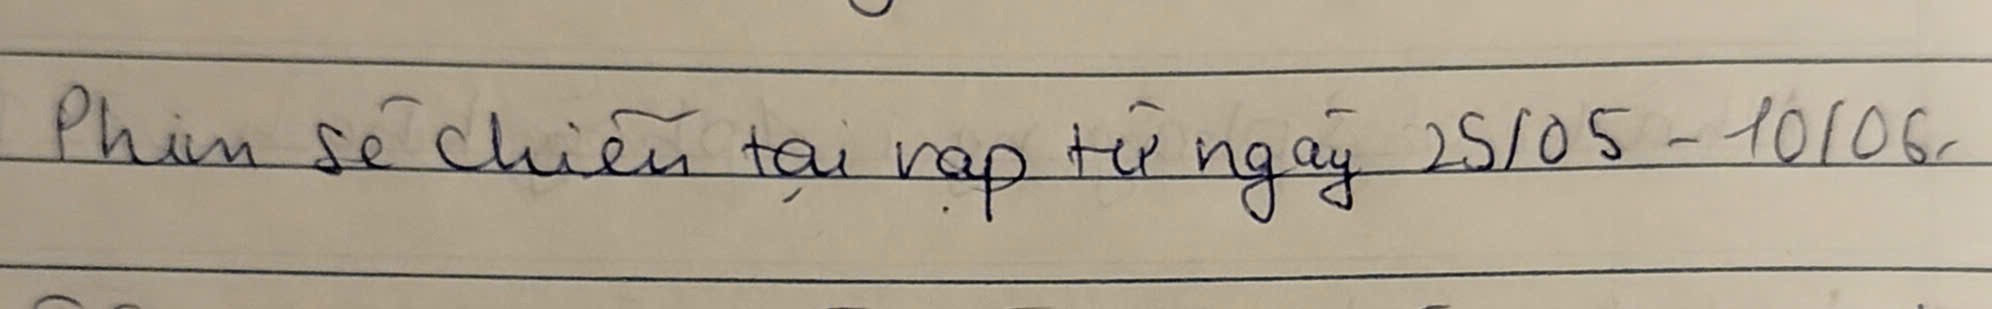 Phim sẽ chiếu tại rạp từ ngày 25/05 - 10/06.